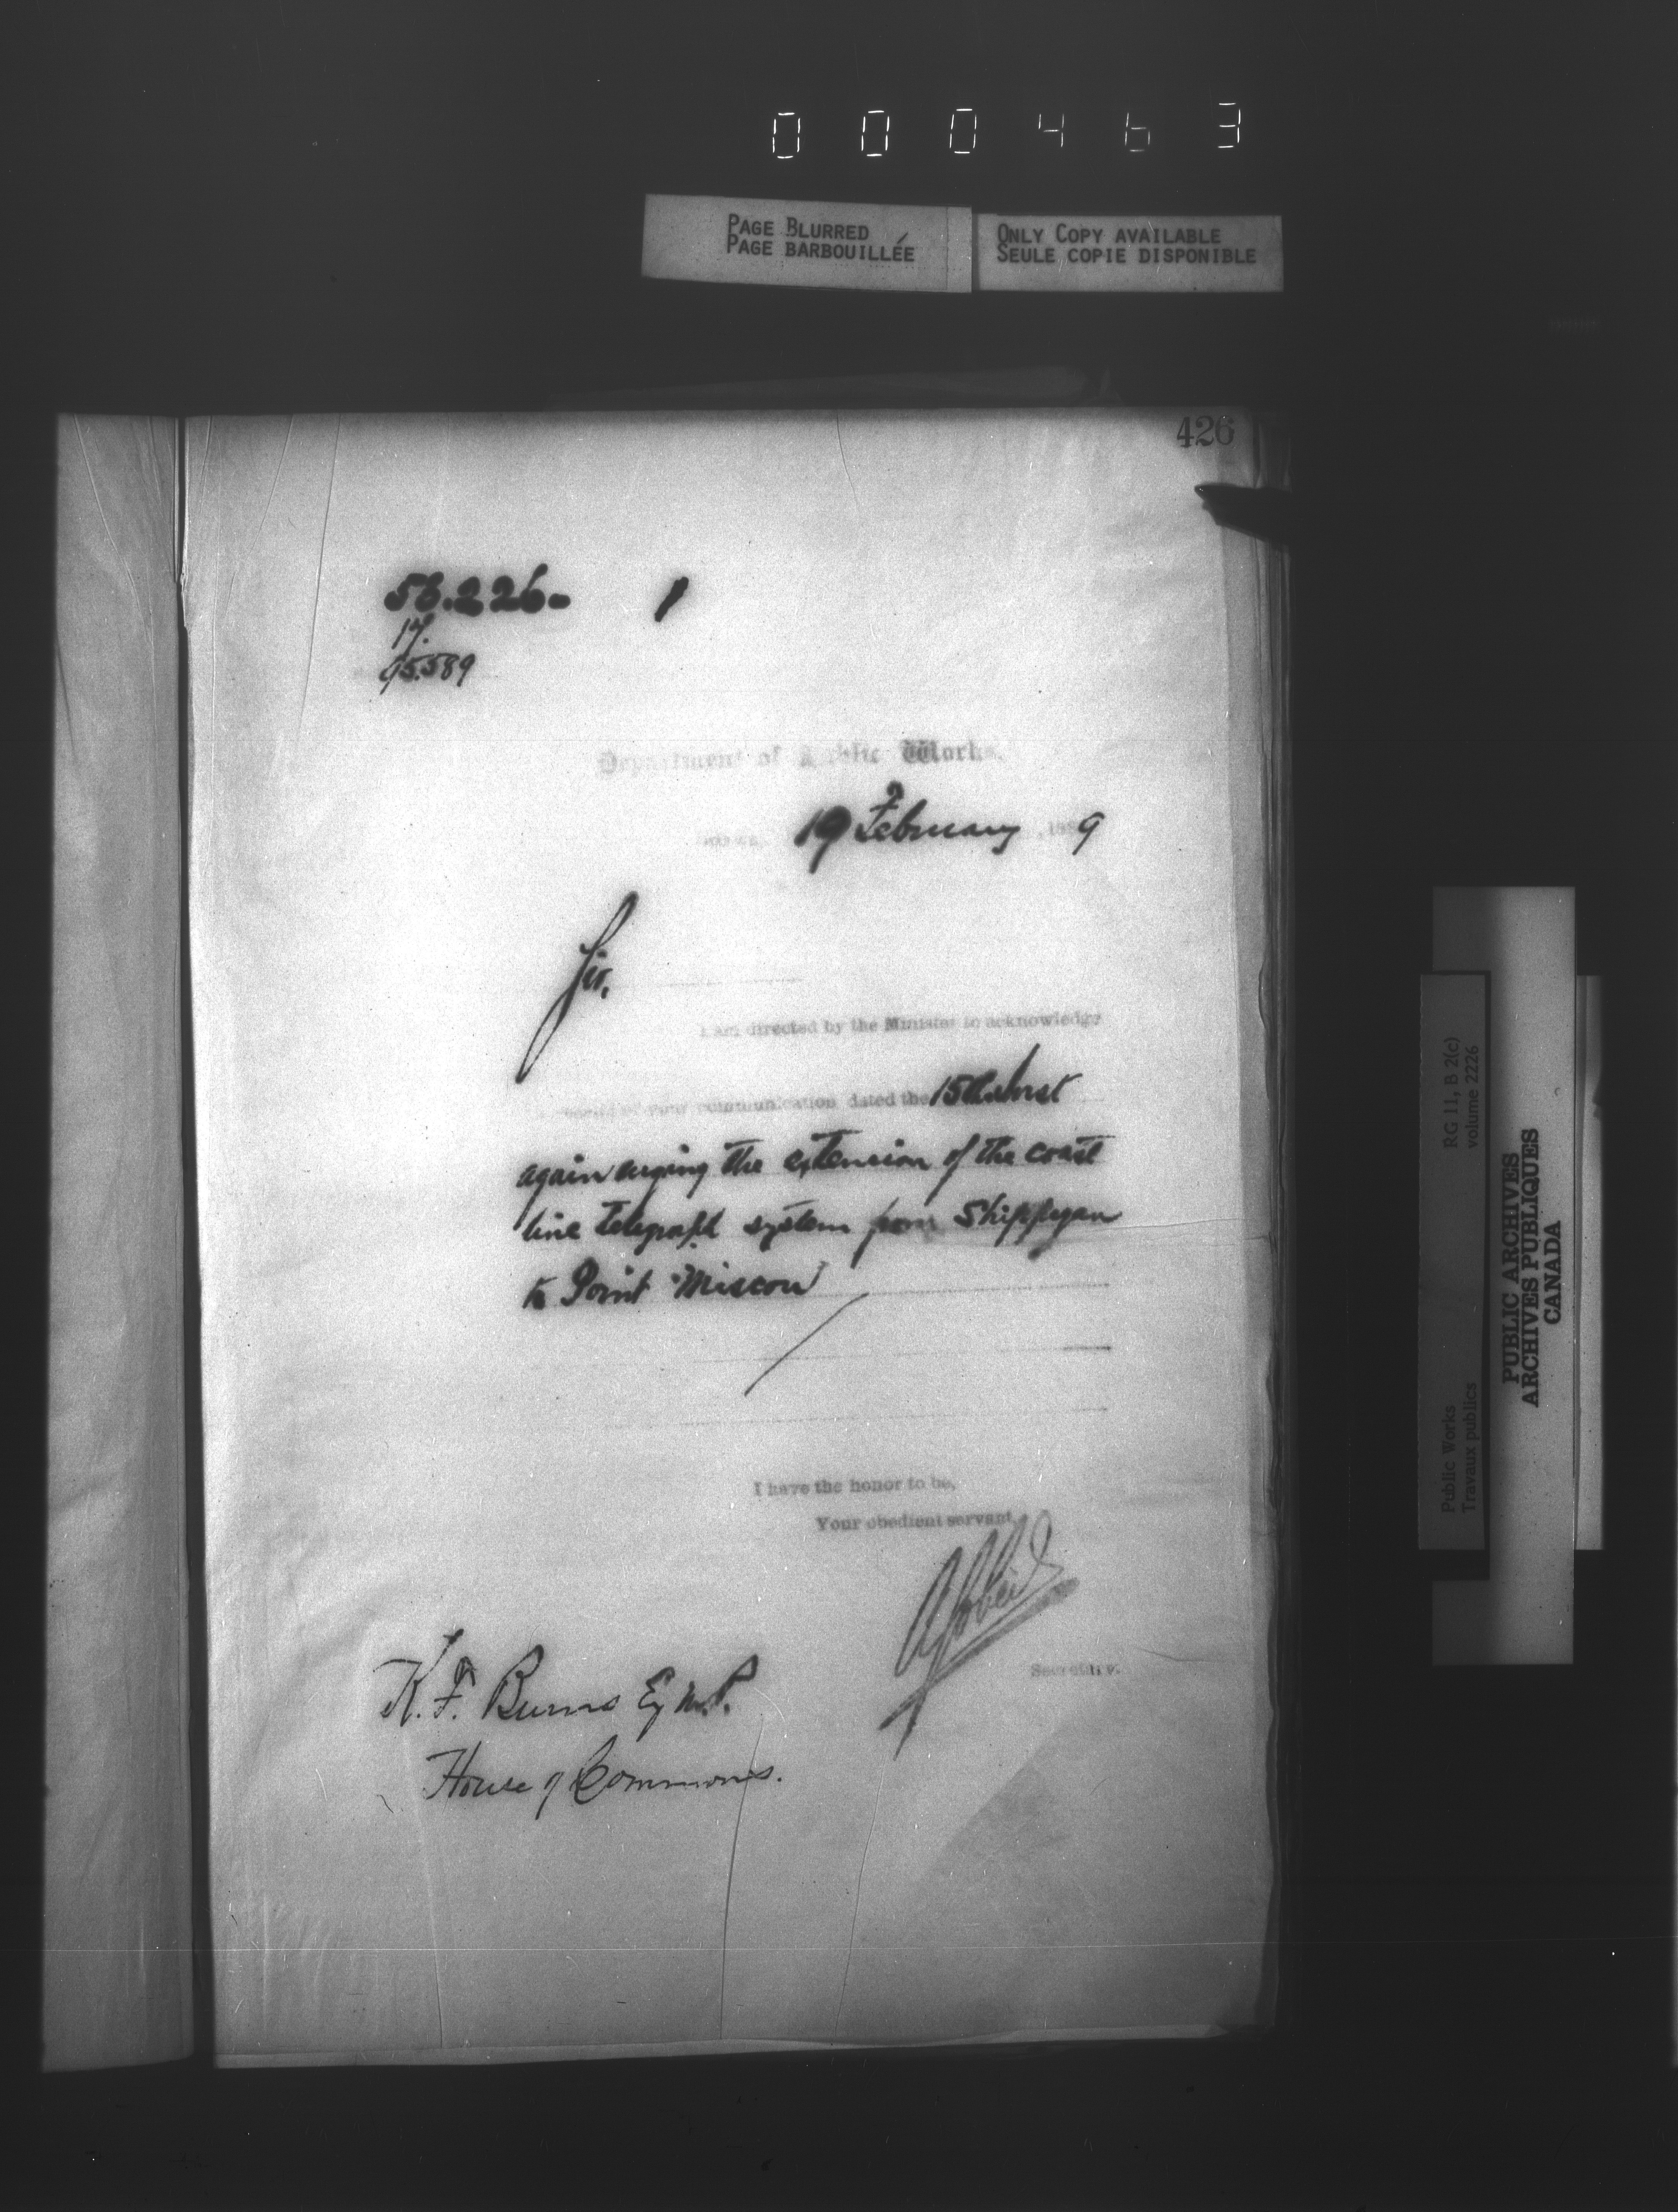 000463
PAGE BLURRED
PAGE BARBOUILLÉE
ONLY COPY AVAILABLE
SEULE COPIE DISPONIBLE
426
56.226- 1
17.
95.589
Department of Public Works.
19 February , 1889
Sir,
I am directed by the Minister to acknowledge
of your communication dated the 15th Inst
again urging the extension of the coast
line telegraph system from Shippegan
to Point Miscou
I have the honor to be,
Your obedient servant,
Secretary.
K. F. Burns Esq M.P.
House of Commons.
RG 11, B 2(c)
volume 2226
Public Works
Travaux publics
PUBLIC ARCHIVES
ARCHIVES PUBLIQUES
CANADA